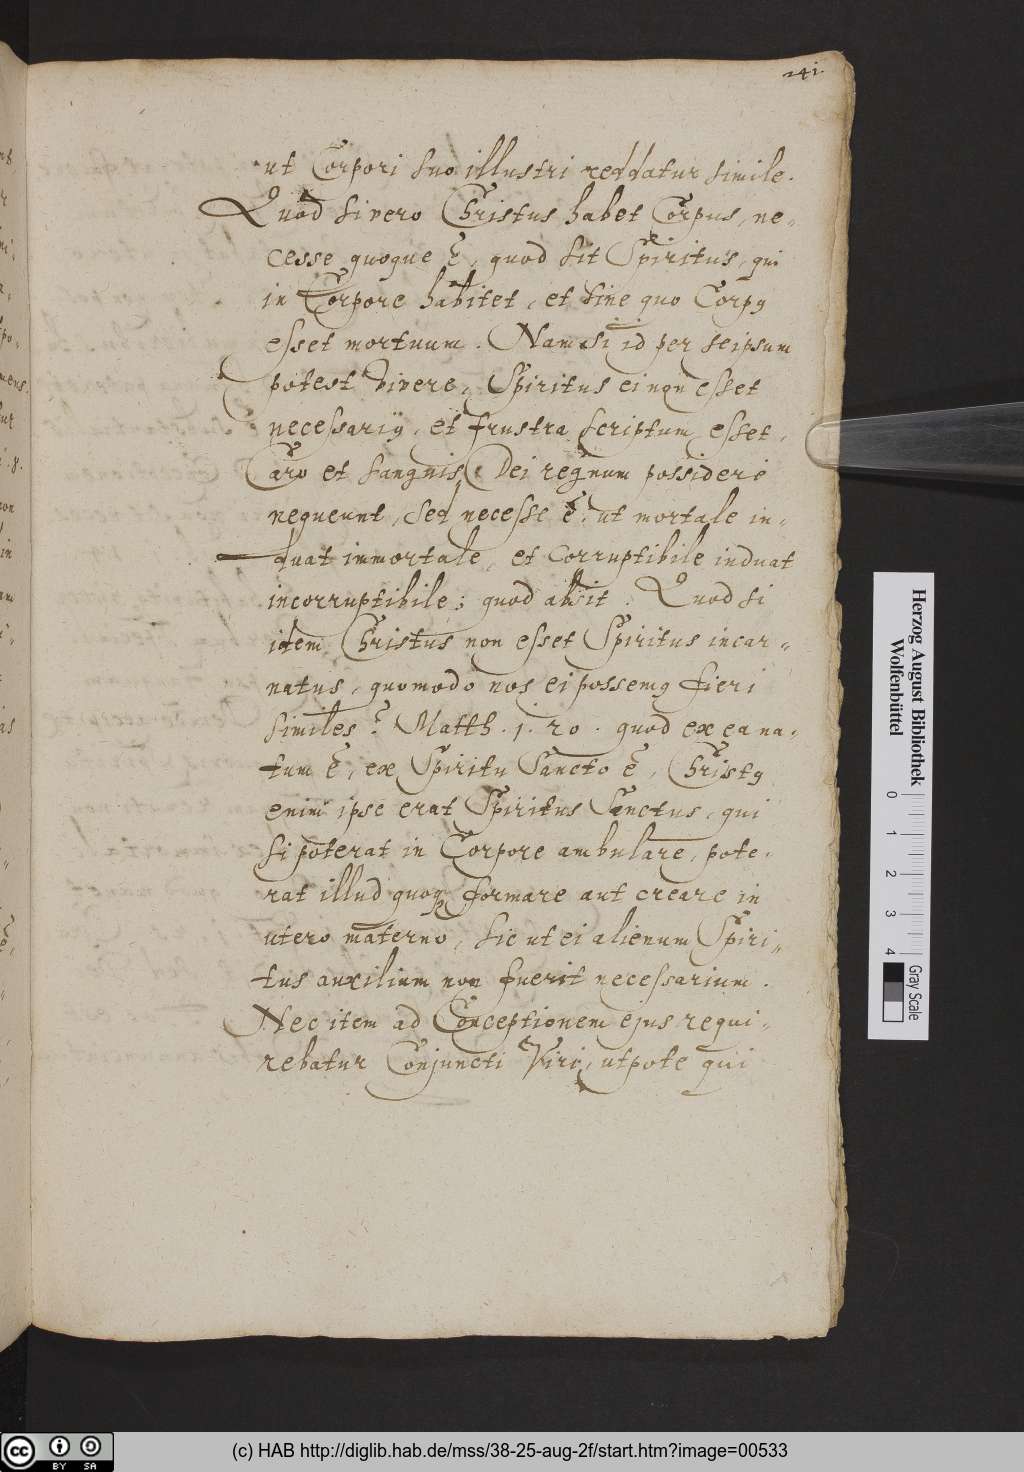 241.
ut Corpori suo illustri reddatur simile.
Quod si vero Christus habet Corpus, ne-
cesse quoque ẽ, quod sit Spiritus, qui
in Corpore habitet, et sine quo Corpꝰ
esset mortuum. Nam si id per seipsum
potest vivere, Spiritus ei non esset
necessariꝰ, et frustra scriptum esset,
Caro et sanguis Dei regnum possidere
nequeunt, sed necesse ẽ, ut mortale in-
duat immortale, et corruptibile induat
incorruptibile; quod absit. Quod si
idem Christus non esset Spiritus incar-
natus, quomodo nos ei possemꝰ fieri
similes? Matth. 1. 20. quod ex ea na-
tum ẽ, ex Spiritu Sancto ẽ, Christꝰ
enim ipse erat Spiritus Sanctus, qui
si poterat in Corpore ambulare, pote-
rat illud quoqꝫ formare aut creare in
utero materno, sic ut ei alienum Spiri-
tus auxilium non fuerit necessarium.
Nec item ad Conceptionem ejus requi-
rebatur Conjuncti Viri, utpote qui
Herzog August Bibliothek
Wolfenbüttel
0 1 2 3 4
Gray Scale
cc BY SA
(c) HAB http://diglib.hab.de/mss/38-25-aug-2f/start.htm?image=00533